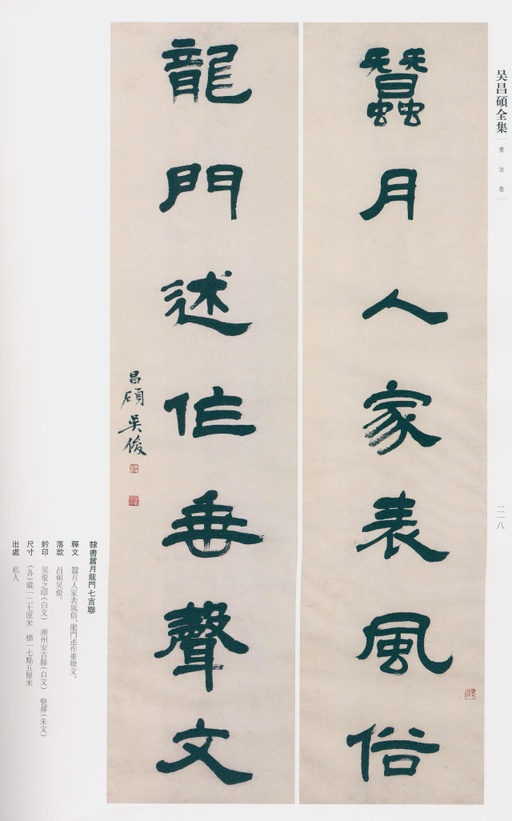 吴昌碩全集 書法卷
二一八
蠶月人家表風俗
龍門述作垂聲文
昌碩吴俊
隸書蠶月龍門七言聯
釋文 蠶月人家表風俗,龍門述作垂聲文。
落款 昌碩吴俊。
鈐印 吴俊之印(白文) 湖州安吉縣(白文) (朱文)
尺寸 (各)縱一二七厘米 橫一七點五厘米
出處 私人